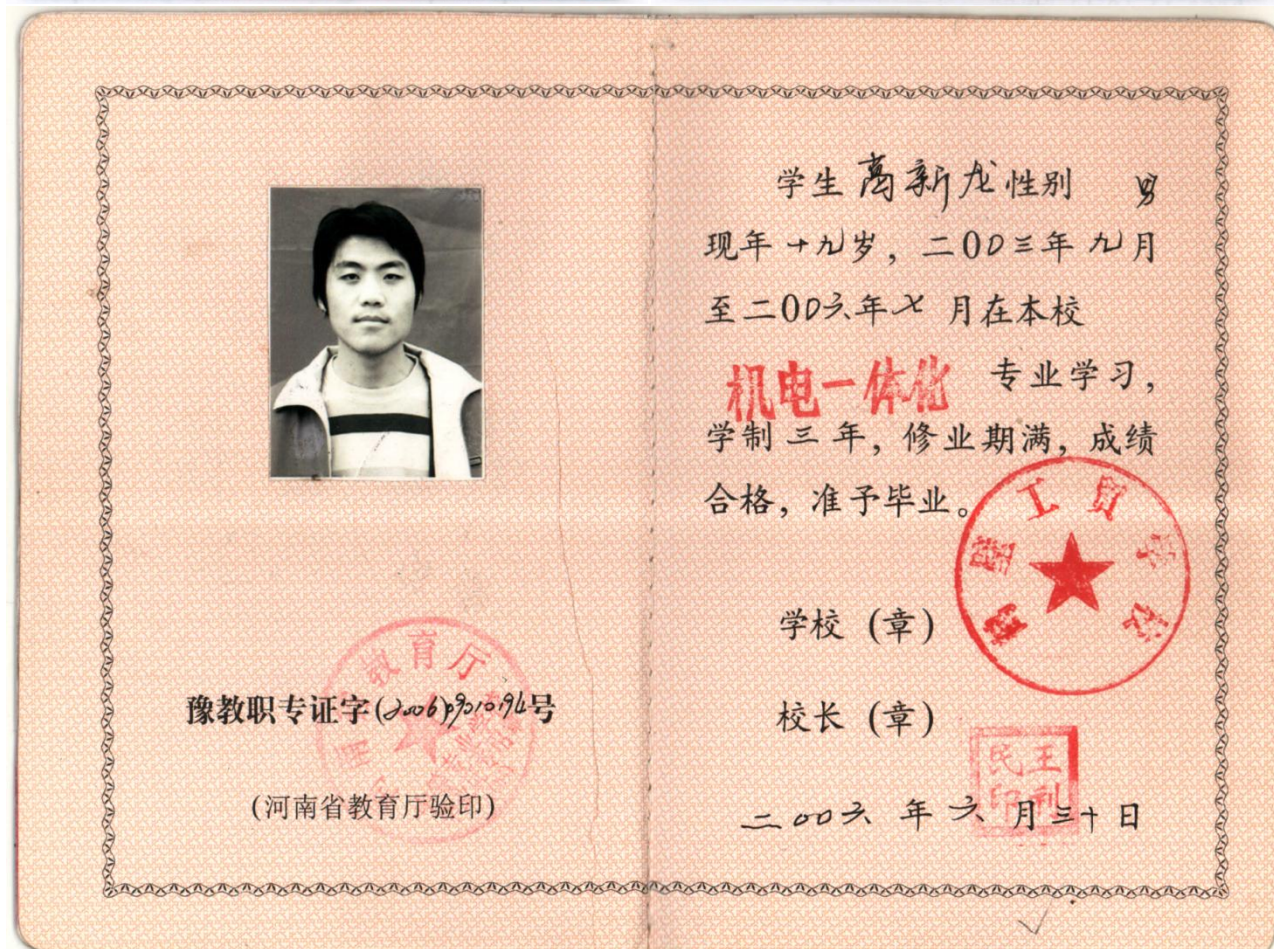 豫教职专证字(2006)
(河南省教育厅验印)
教育厅
学生 新龙性别 男
现年十九岁，二00三年九月
至二00六年七月在本校
机电一体化 专业学习，
学制三年，修业期满，成绩
合格，准予毕业。
工贸学校
学校（章）
校长（章）
王利民印
二00六年六月三十日